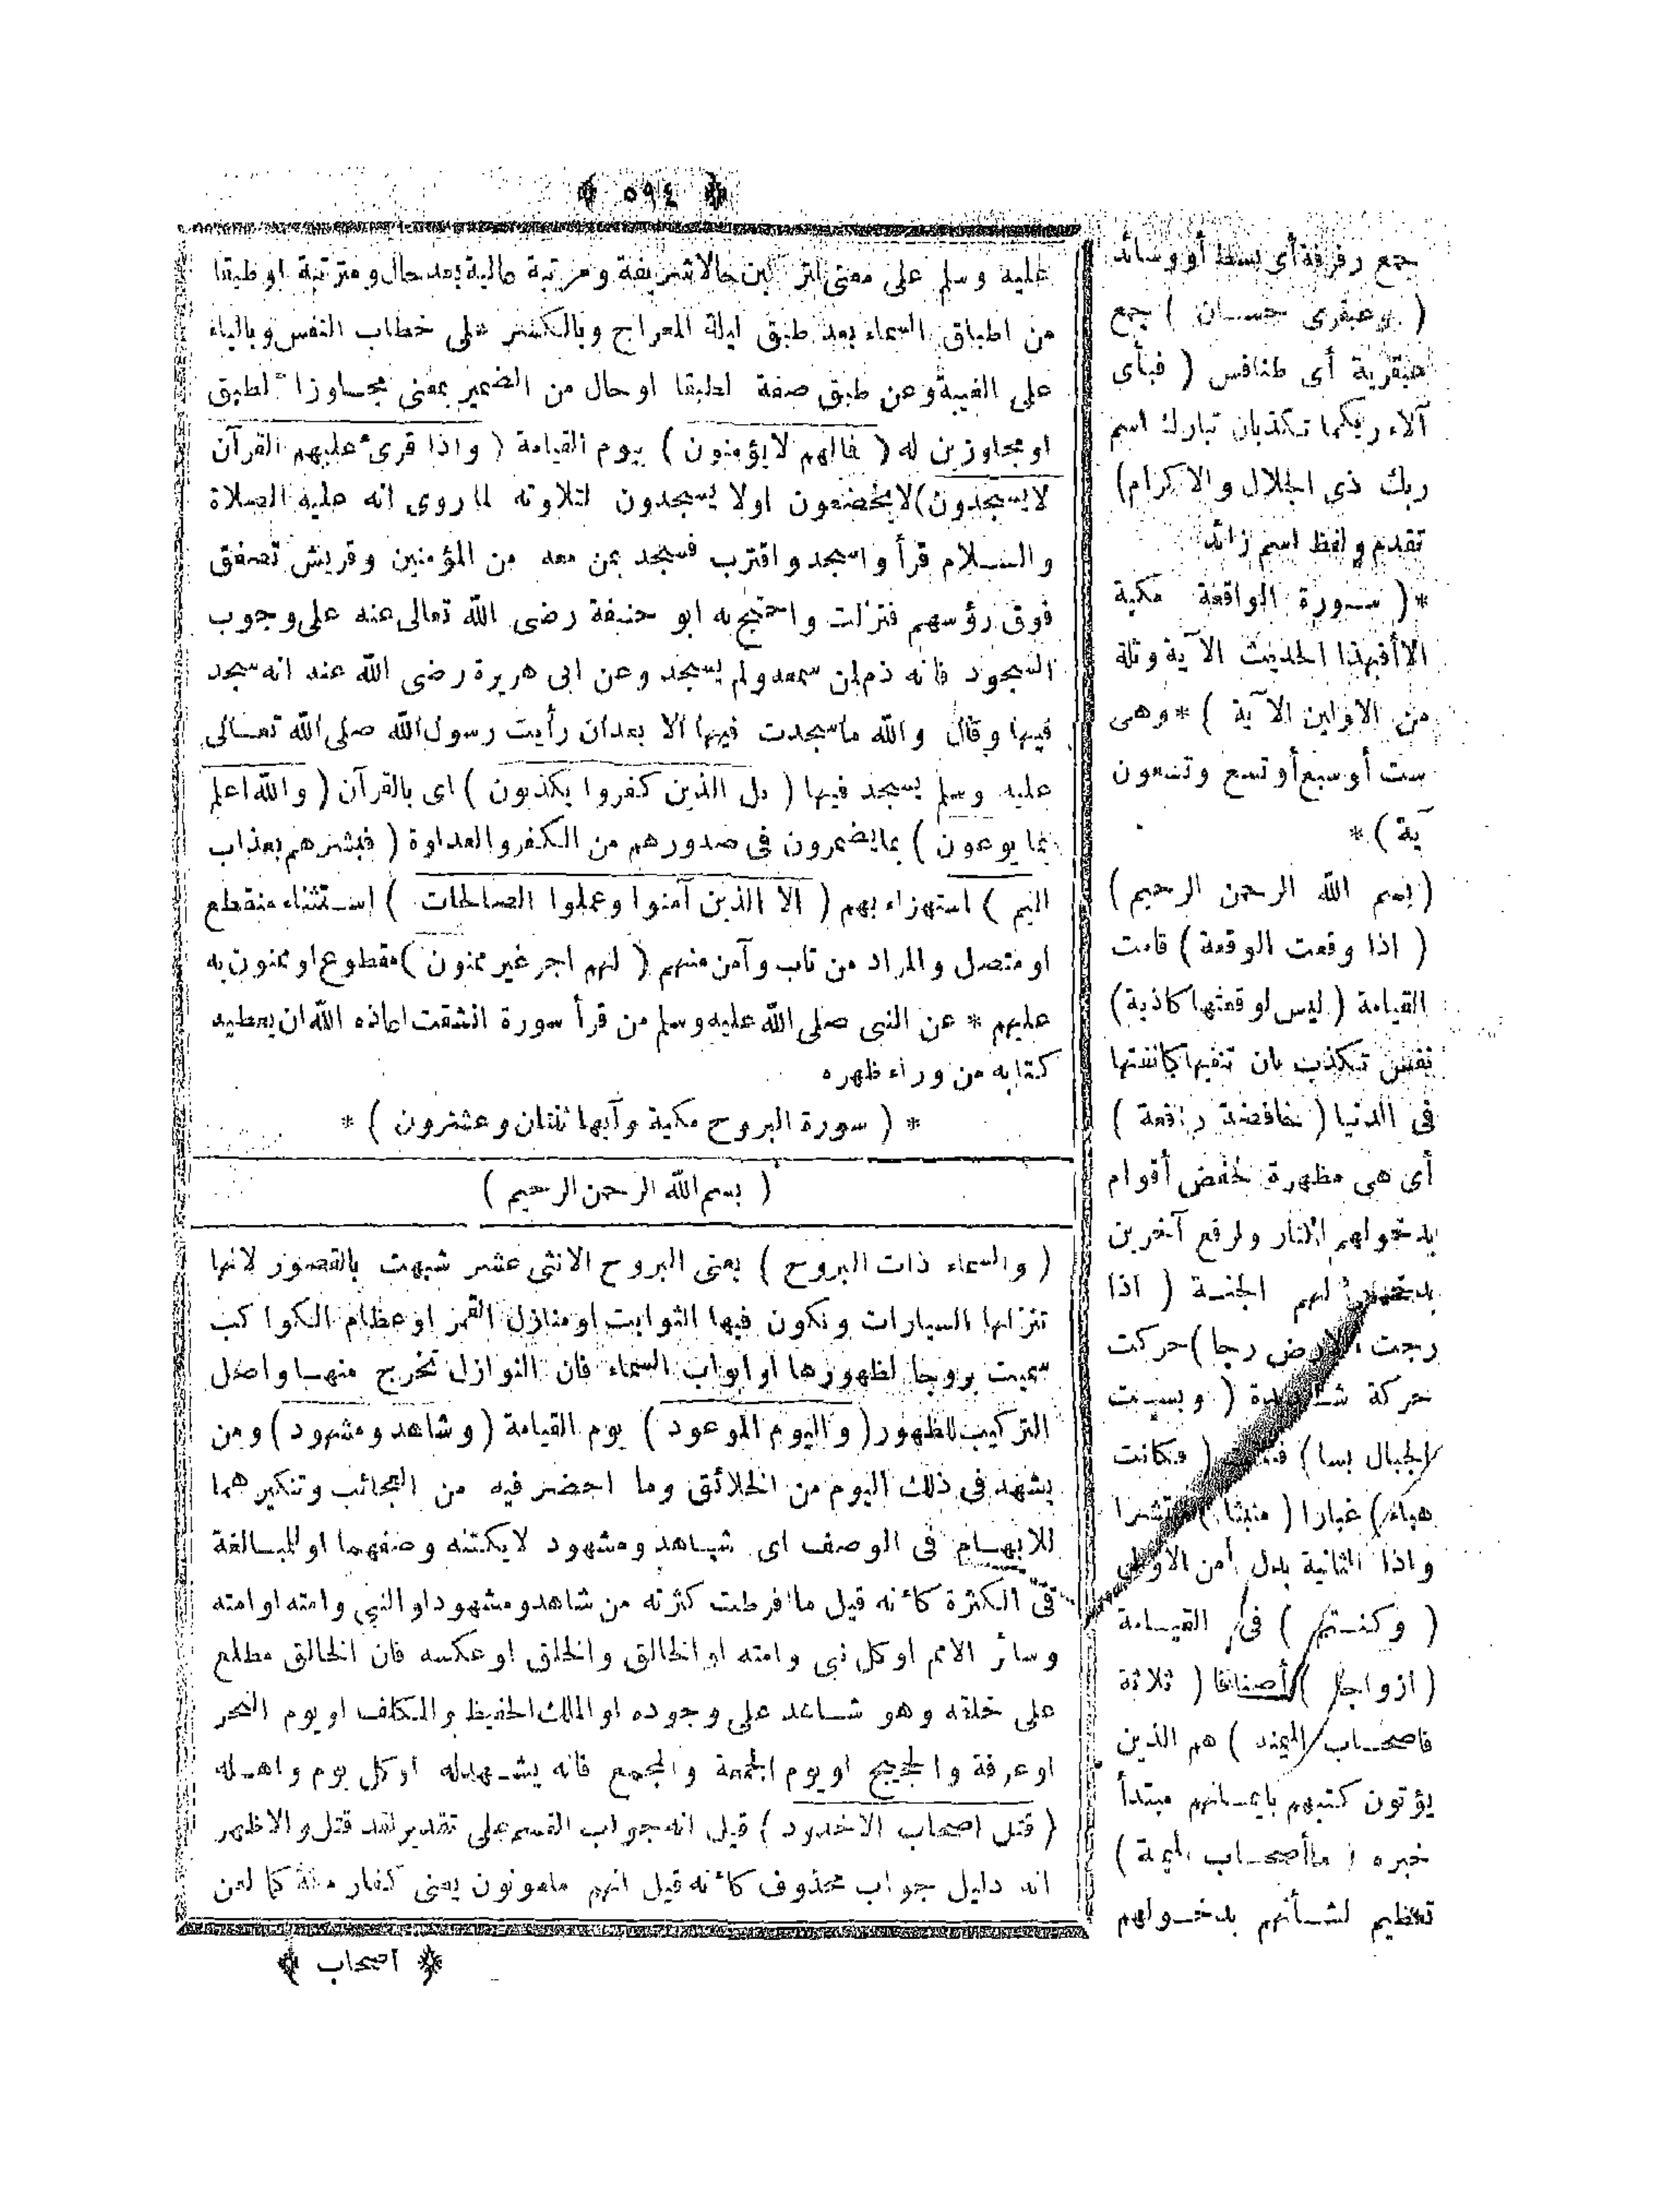 ﴿ ٥٩٤ ﴾
عليه وسلم على معنى لتركبن حالا شريفة ومرتبة عالية بعد حال ومرتبة او طبقا
من اطباق السماء بعد طبق ليلة المعراج وبالكسر على خطاب النفس وبالياء
على الغيبة وعن طبق صفة لطبقا او حال من الضمير بمعنى مجاوزا لطبق
او مجاوزين له ( فالهم لايؤمنون ) بيوم القيامة ( واذا قرئ عليهم القرآن
لايسجدون ) لايخضعون اولا يسجدون لتلاوته لما روى انه عليه الصلاة
والسلام قرأ واسجد واقترب فسجد بمن معه من المؤمنين وقريش تصفق
فوق رؤسهم فنزلت واحتج به ابو حنيفة رضى الله تعالى عنه على وجوب
السجود فانه ذم لمن سمعه ولم يسجد وعن ابى هريرة رضى الله عنه انه سجد
فيها وقال والله ماسجدت فيها الا بعدان رأيت رسول الله صلى الله تعالى
عليه وسلم يسجد فيها ( بل الذين كفروا يكذبون ) اى بالقرآن ( والله اعلم
بما يوعون ) بمايضمرون فى صدورهم من الكفر والعداوة ( فبشرهم بعذاب
اليم ) استهزاء بهم ( الا الذين آمنوا وعملوا الصالحات ) استثناء منقطع
او متصل والمراد من تاب وآمن منهم ( لهم اجر غير ممنون ) مقطوع او ممنون به
عليهم * عن النبى صلى الله عليه وسلم من قرأ سورة انشقت اعاذه الله ان يعطيه
كتابه من وراء ظهره
* ( سورة البروج مكية وآيها ثنتان وعشرون ) *
( بسم الله الرحمن الرحيم )
( والسماء ذات البروج ) يعنى البروج الاثنى عشر شبهت بالقصور لانها
تنزلها السيارات وتكون فيها الثوابت او منازل القمر او عظام الكواكب
سميت بروجا لظهورها او ابواب السماء فان النوازل تخرج منها واصل
التركيب للظهور ( واليوم الموعود ) يوم القيامة ( وشاهد ومشهود ) ومن
يشهد فى ذلك اليوم من الخلائق وما احضر فيه من العجائب وتنكيرهما
للابهام فى الوصف اى شاهد ومشهود لايكتنه وصفهما او للمبالغة
فى الكثرة كأنه قيل ماافرطت كثرته من شاهد ومشهود او النبى وامته او امته
وسائر الامم او كل نبى وامته او الخالق والخلق او عكسه فان الخالق مطلع
على خلقه وهو شاهد على وجوده او الملك الحفيظ والمكلف او يوم النحر
او عرفة والحجيج او يوم الجمعة والمجمع فانه يشهدله او كل يوم واهله
( قتل اصحاب الاخدود ) قيل انه جواب القسم على تقدير لقد قتل والاظهر
انه دليل جواب محذوف كأنه قيل انهم ملعونون يعنى كفار مكة كما لعن
﴿ اصحاب ﴾
جمع رفرفة أى بسط أو وسائد
( وعبقرى حسان ) جمع
عبقرية أى طنافس ( فبأى
آلاء ربكما تكذبان تبارك اسم
ربك ذى الجلال والاكرام )
تقدم ولفظ اسم زائد
* ( سورة الواقعة مكية
الا أفبهذا الحديث الآية وثلة
من الاولين الآية ) * وهى
ست أو سبع أو تسع وتسعون
آية ) *
( بسم الله الرحمن الرحيم )
( اذا وقعت الوقعة ) قامت
القيامة ( ليس لوقعتها كاذبة )
نفس تكذب بان تنفيها كما نفتها
فى الدنيا ( خافضة رافعة )
أى هى مظهرة لخفض أقوام
بدخولهم النار ولرفع آخرين
بدخولهم الجنة ( اذا
رجت الارض رجا ) حركت
حركة شديدة ( وبست
الجبال بسا ) فتتت ( فكانت
هباء ) غبارا ( منبثا ) منتشرا
واذا الثانية بدل من الاولى
( وكنتم ) فى القيامة
( ازواجا ) أصنافا ( ثلاثة
فاصحاب الميمنة ) هم الذين
يؤتون كتبهم بايمانهم مبتدأ
خبره ( ماأصحاب الميمنة )
تعظيم لشأنهم بدخولهم